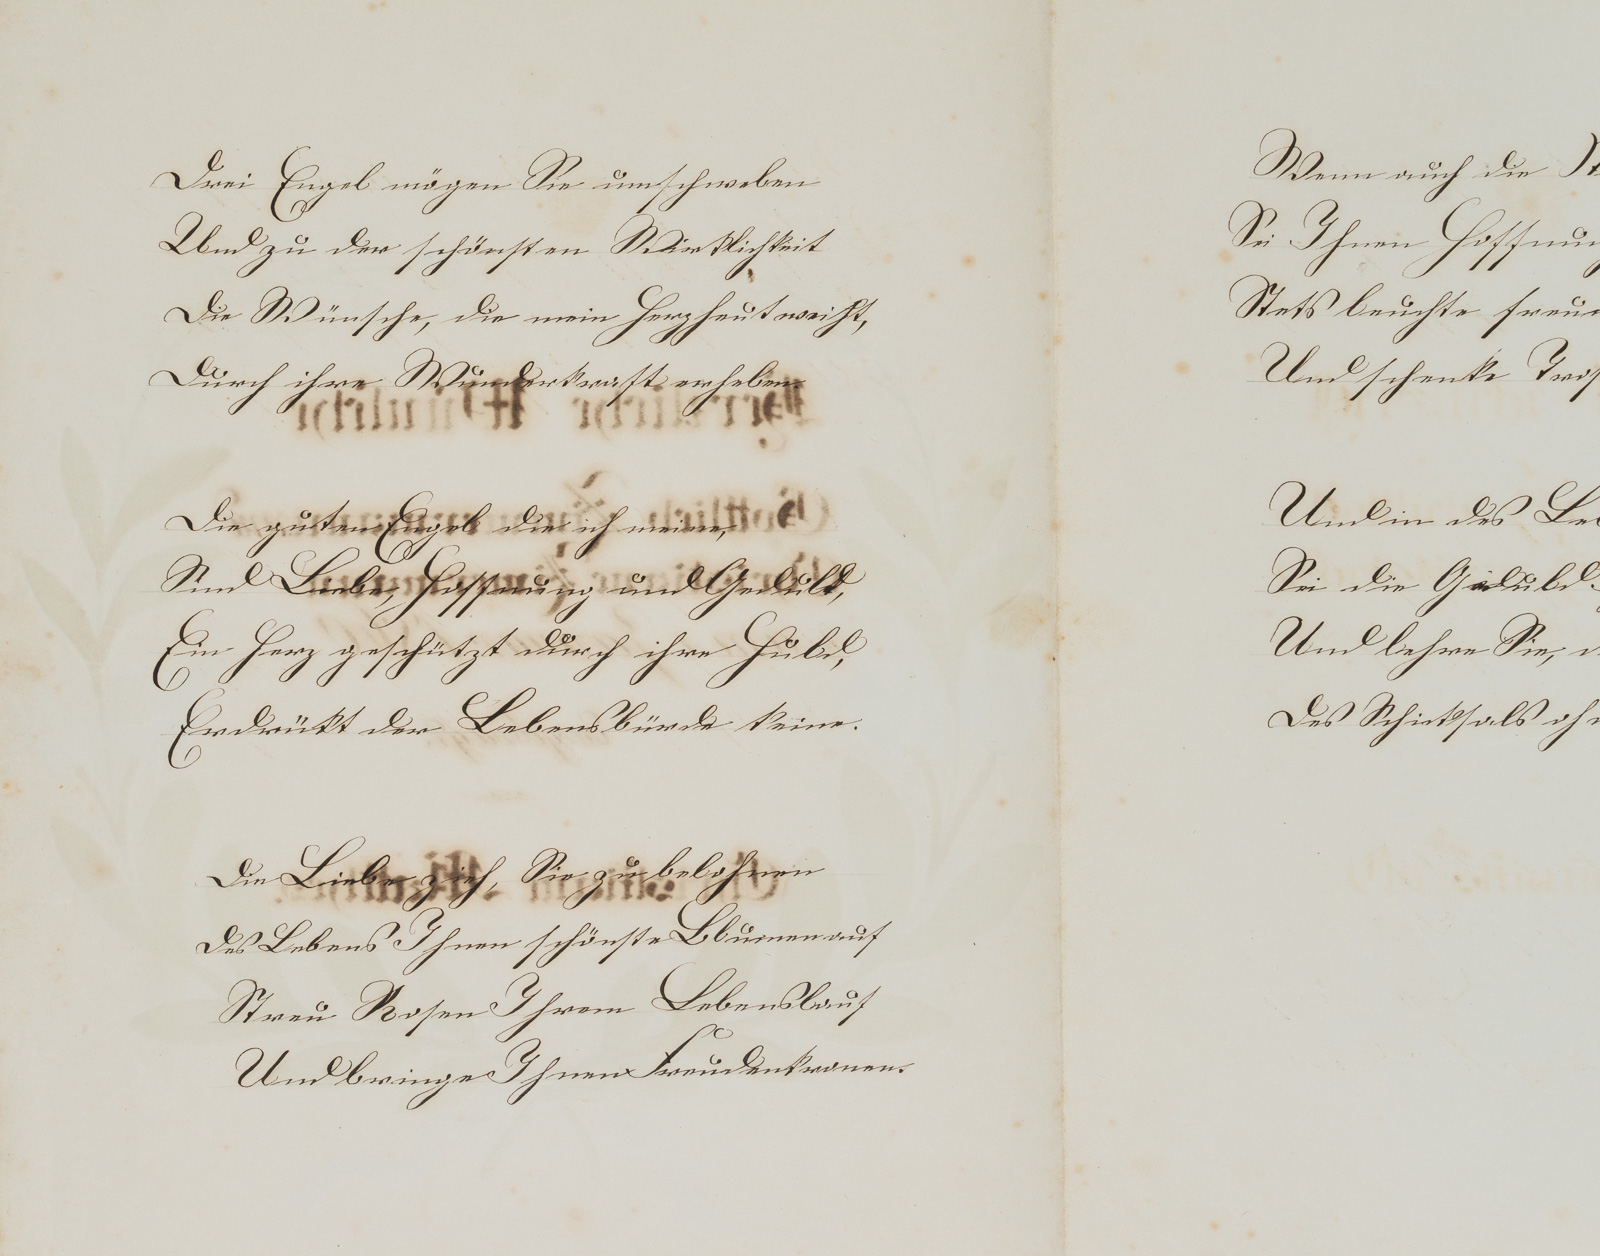 Drei Engel mögen Sie umschweben
Und zu der schönsten Wirklichkeit
Die Wünsche, die mein Herz heut weiht,
Durch ihre Wunderkraft erheben
Die guten Engel die ich meine,
Sind Liebe, Hoffnung und Geduld,
Ein Herz geschützt durch ihre Huld,
Erdrükt der Lebensbürde keine.
Die Liebe zieh, Sie zu belohnen
Des Lebens Ihnen schönste Blumen auf
Streu Rosen Ihrem Lebenslauf
Und bringe Ihnen Freudenkronen.
Wenn auch die
Sei Ihnen Hoffnun
Stets leuchte freun
Und schenke Tros
Und in des Le
Sei die Geduld
Und lehre Sie,
Des Schicksals oh